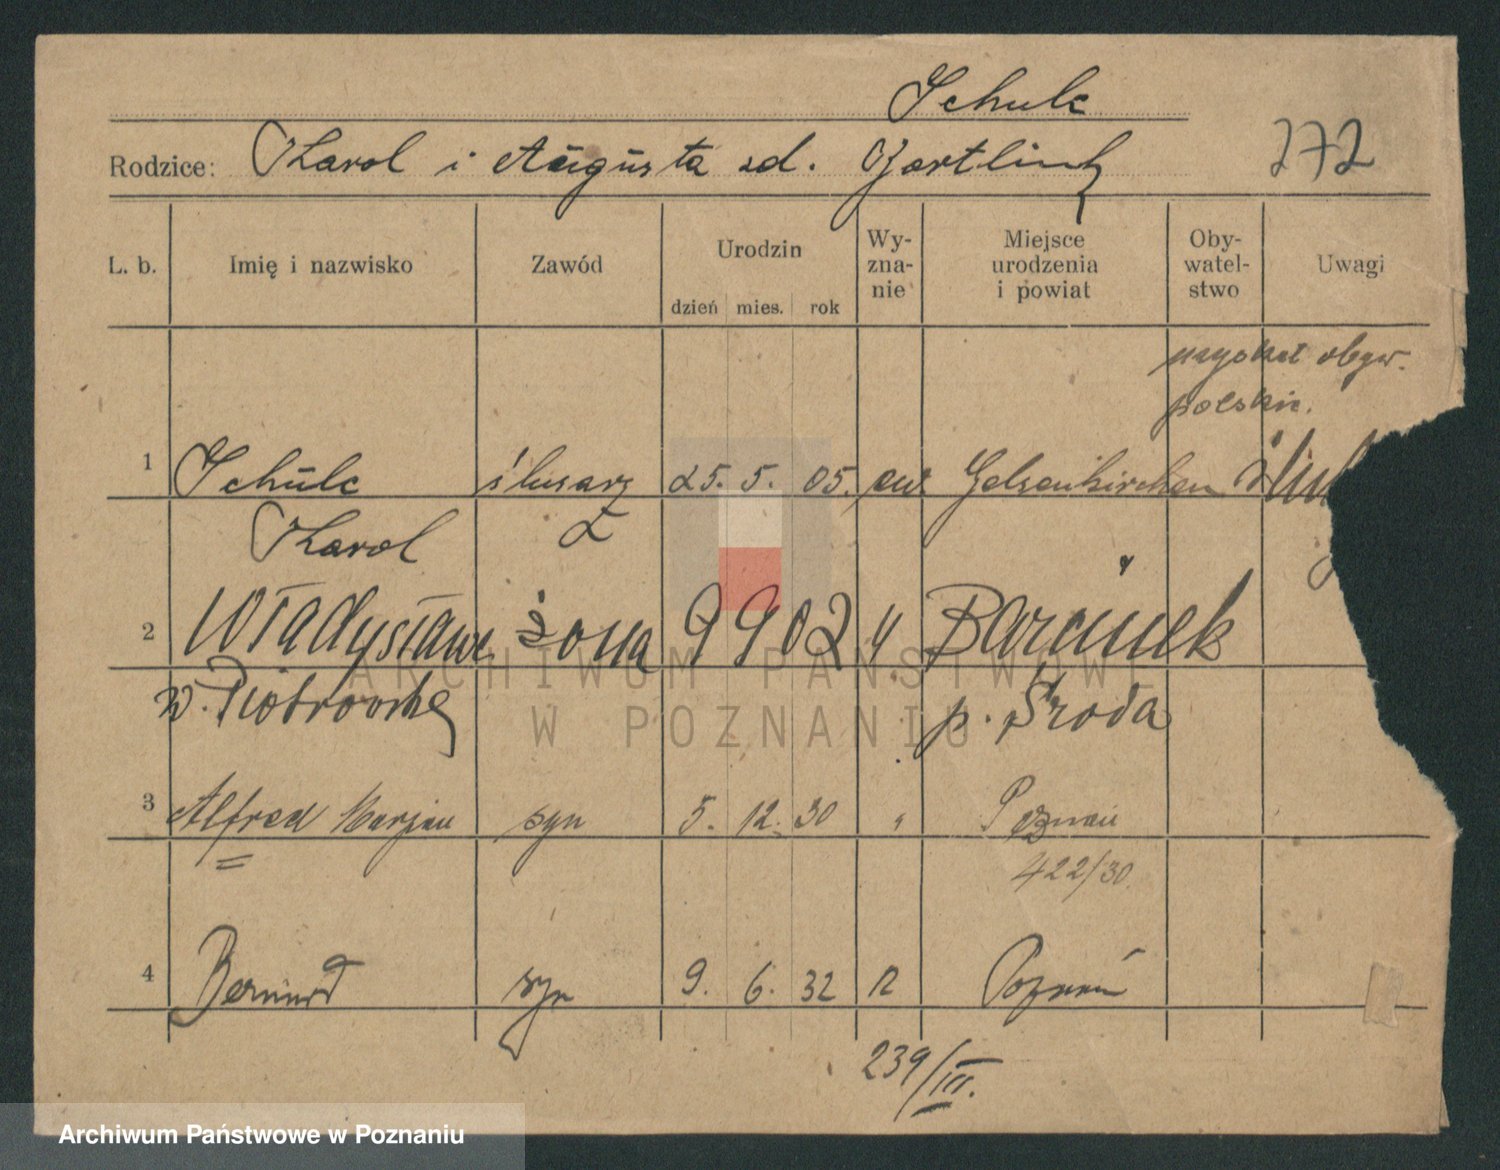 Schulc
Rodzice: Karol i Augusta zd. Gortling
272
L. b. Imię i nazwisko Zawód Urodzin dzień mies. rok Wy-zna-nie Miejsce urodzenia i powiat Oby-watel-stwo Uwagi
uzyskał obyw.
polskie.
1 Schulc ślusarz 25. 5. 05. ew. Gelsenkirchen
Karol
2 Władysława żona 9 9 02 " Barcinek
z. Piotrowska p. Środa
3 Alfred Marjan syn 5. 12. 30 " Poznań
422/30.
4 Bernard syn 9. 6. 32 Poznań
239/III.
ARCHIWUM PAŃSTWOWE
W POZNANIU
Archiwum Państwowe w Poznaniu